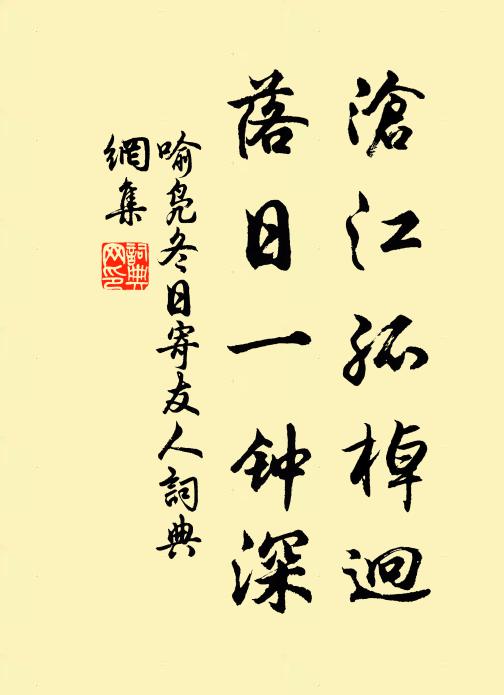 滄江孤棹迥
落日一钟深
喻凫冬日寄友人詞典
網集
詞典
网印